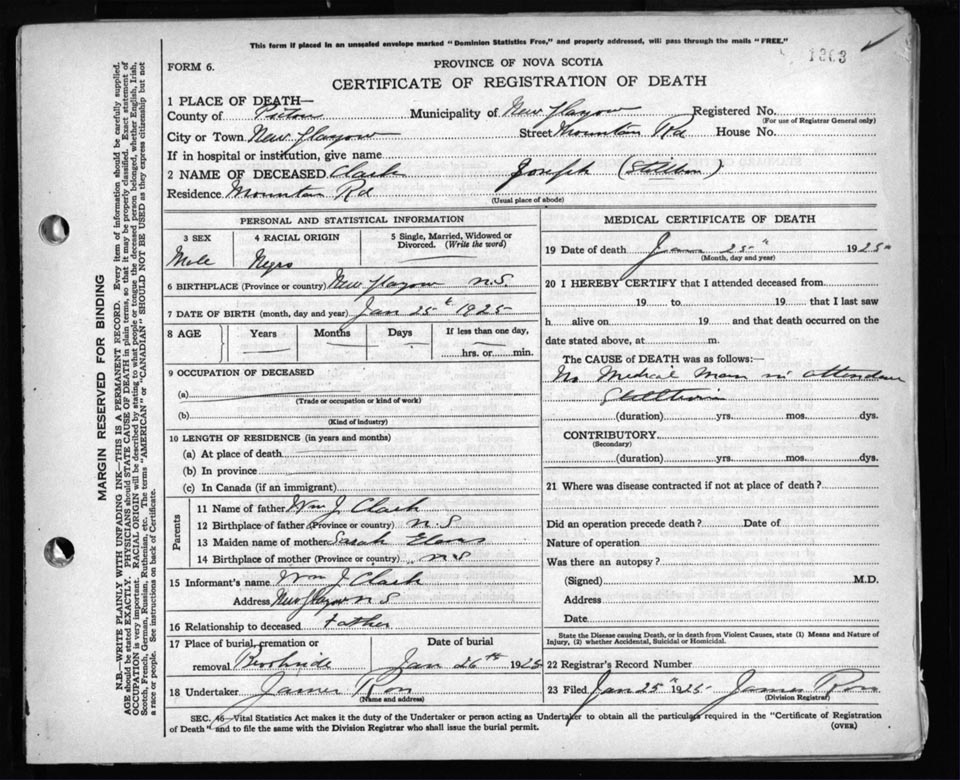 This form if placed in an unsealed envelope marked "Dominion Statistics Free," and properly addressed, will pass through the mails "FREE."
1303
FORM 6.
PROVINCE OF NOVA SCOTIA
CERTIFICATE OF REGISTRATION OF DEATH
1 PLACE OF DEATH—
County of Pictou Municipality of New Glasgow Registered No.
(For use of Registrar General only)
City or Town New Glasgow Street Mountain Rd House No.
If in hospital or institution, give name
2 NAME OF DECEASED Clark Joseph (Stillborn)
Residence Mountain Rd
(Usual place of abode)
PERSONAL AND STATISTICAL INFORMATION
3 SEX 4 RACIAL ORIGIN 5 Single, Married, Widowed or Divorced. (Write the word)
Male Negro
6 BIRTHPLACE (Province or country) New Glasgow N.S.
7 DATE OF BIRTH (month, day and year) Jan 25th 1925
8 AGE Years Months Days If less than one day,
hrs. or min.
9 OCCUPATION OF DECEASED
(a)
(Trade or occupation or kind of work)
(b)
(Kind of industry)
10 LENGTH OF RESIDENCE (in years and months)
(a) At place of death
(b) In province
(c) In Canada (if an immigrant)
Parents
11 Name of father Wm J. Clark
12 Birthplace of father (Province or country) N.S
13 Maiden name of mother Sarah
14 Birthplace of mother (Province or country) N.S
15 Informant's name Wm J. Clark
Address New Glasgow N S
16 Relationship to deceased Father
17 Place of burial, cremation or removal Date of burial
Jan 26th 1925
18 Undertaker James Ross
(Name and address)
MEDICAL CERTIFICATE OF DEATH
19 Date of death Jan 25" 1925
(Month, day and year)
20 I HEREBY CERTIFY that I attended deceased from
19 to 19 that I last saw
h alive on 19 and that death occurred on the
date stated above, at m.
The CAUSE OF DEATH was as follows:—
No Medical Man in attendance
(duration) yrs. mos. dys.
CONTRIBUTORY
(Secondary)
(duration) yrs. mos. dys.
21 Where was disease contracted if not at place of death?
Did an operation precede death? Date of
Nature of operation
Was there an autopsy?
(Signed) M.D.
Address
Date
State the Disease causing Death, or in death from Violent Causes, state (1) Means and Nature of
Injury, (2) whether Accidental, Suicidal or Homicidal.
22 Registrar's Record Number
23 Filed Jan 25" 1925 James Ross
(Division Registrar)
SEC. 46—Vital Statistics Act makes it the duty of the Undertaker or person acting as Undertaker to obtain all the particulars required in the "Certificate of Registration
of Death" and to file the same with the Division Registrar who shall issue the burial permit.
(OVER)
MARGIN RESERVED FOR BINDING
N.B.—WRITE PLAINLY WITH UNFADING INK—THIS IS A PERMANENT RECORD. Every item of information should be carefully supplied.
AGE should be stated EXACTLY. PHYSICIANS should STATE CAUSE OF DEATH in plain terms, so that it may be properly classified. Exact statement of
OCCUPATION is very important. RACIAL ORIGIN will be described by stating to what people or tongue the deceased person belonged, whether English, Irish,
Scotch, French, German, Russian, Ruthenian, etc. The terms "AMERICAN" or "CANADIAN" SHOULD NOT BE USED as they express citizenship but not
a race or people. See instructions on back of Certificate.